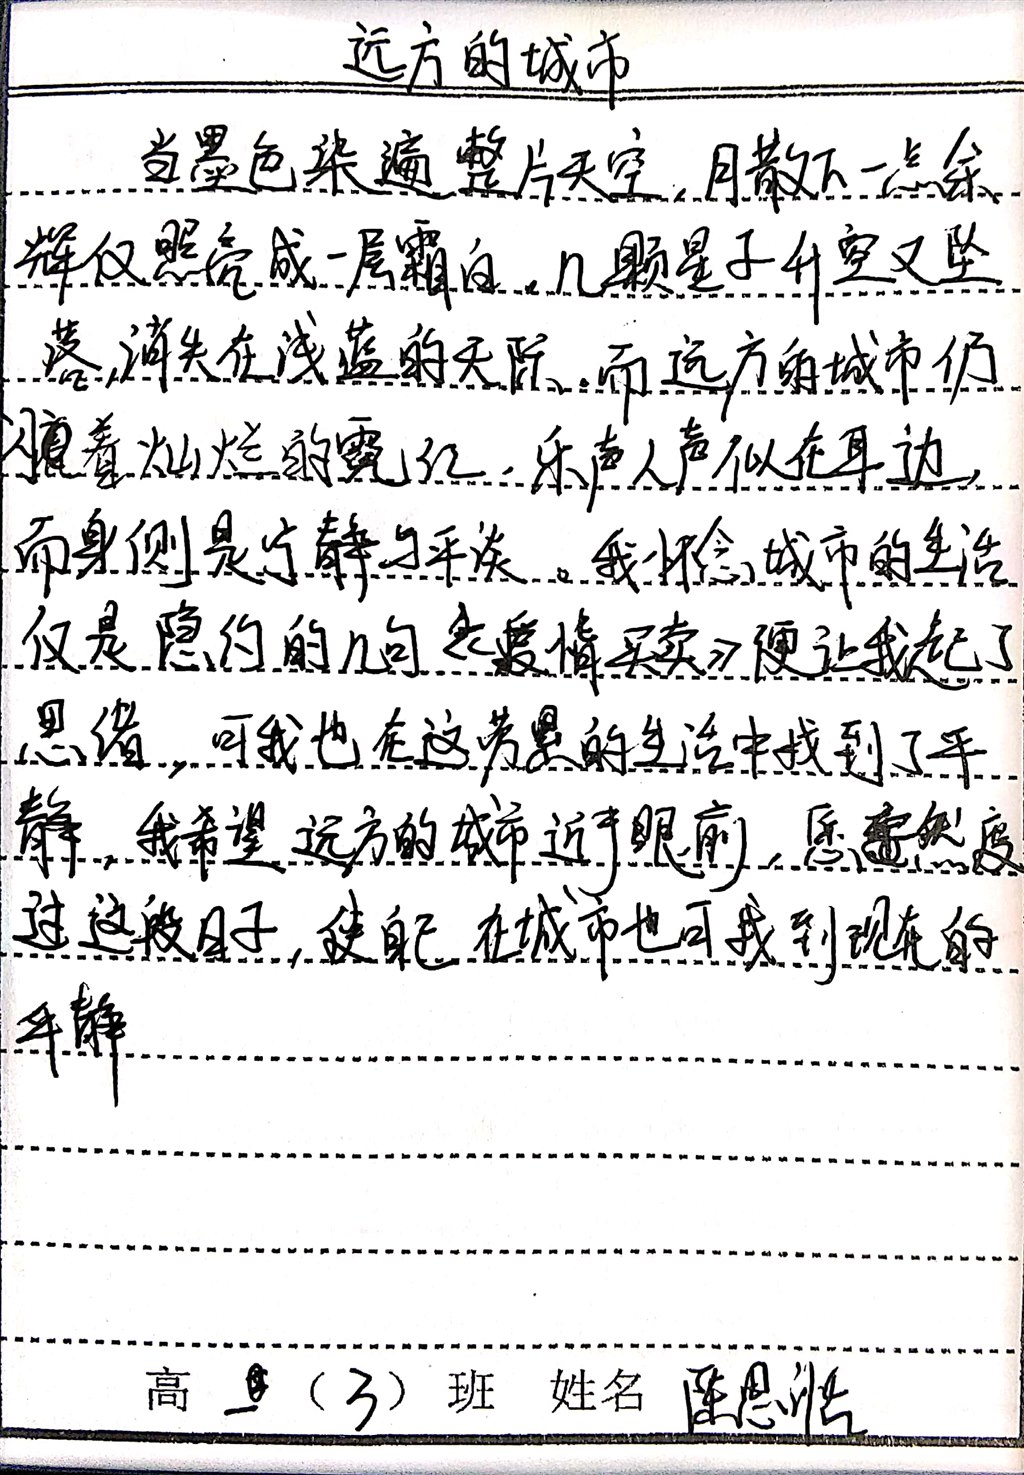 远方的城市
当墨色染遍整片天空,月散下一点余
辉仅照亮成一层霜白,几颗星子升空又坠
落,消失在浅蓝的天际。而远方的城市仍
着灿烂的霓红,乐声人声似在耳边,
而身侧是宁静与平淡。我怀念城市的生活
仅是隐约的几句《爱情买卖》便让我起了
思绪,可我也在这劳累的生活中找到了平
静,我希望远方的城市近乎眼前,然度
过这段日子,使自己在城市也可找到现在的
平静
高(3)班 姓名 陈思浩